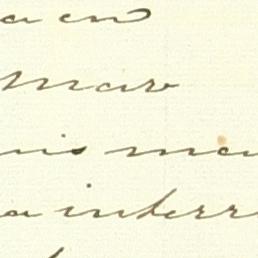 a en
mar
is ma
a interr